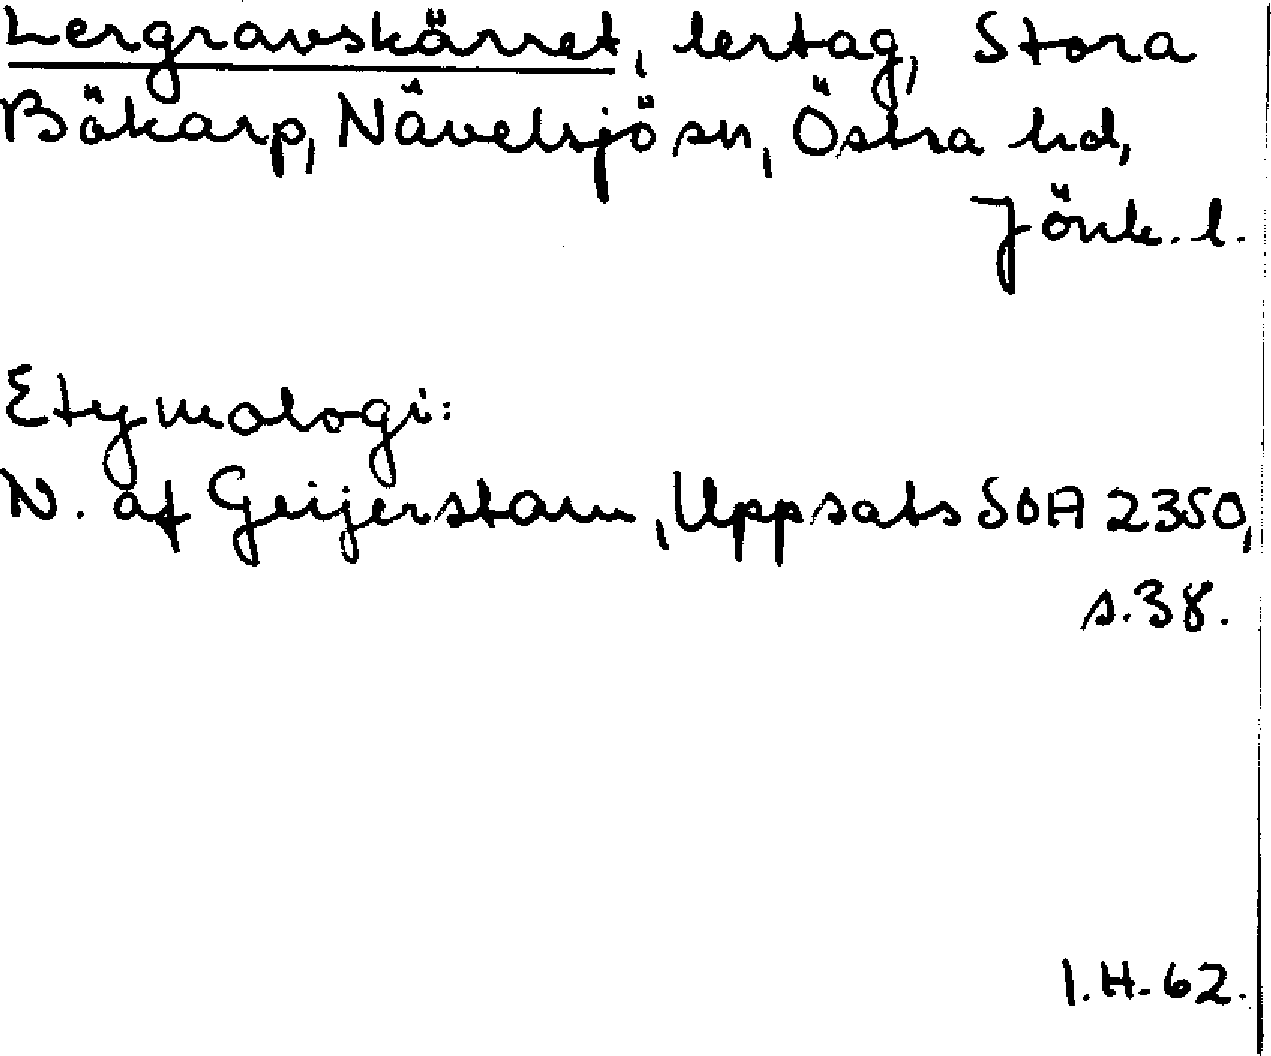 Lergravskärret, lertag, Stora
Bökarp, Nävelsjö sn, Östra hd,
Jönk. l.
Etymologi:
N. af Geijerstam, Uppsats SOA 2350,
s. 38.
I.H. 62.